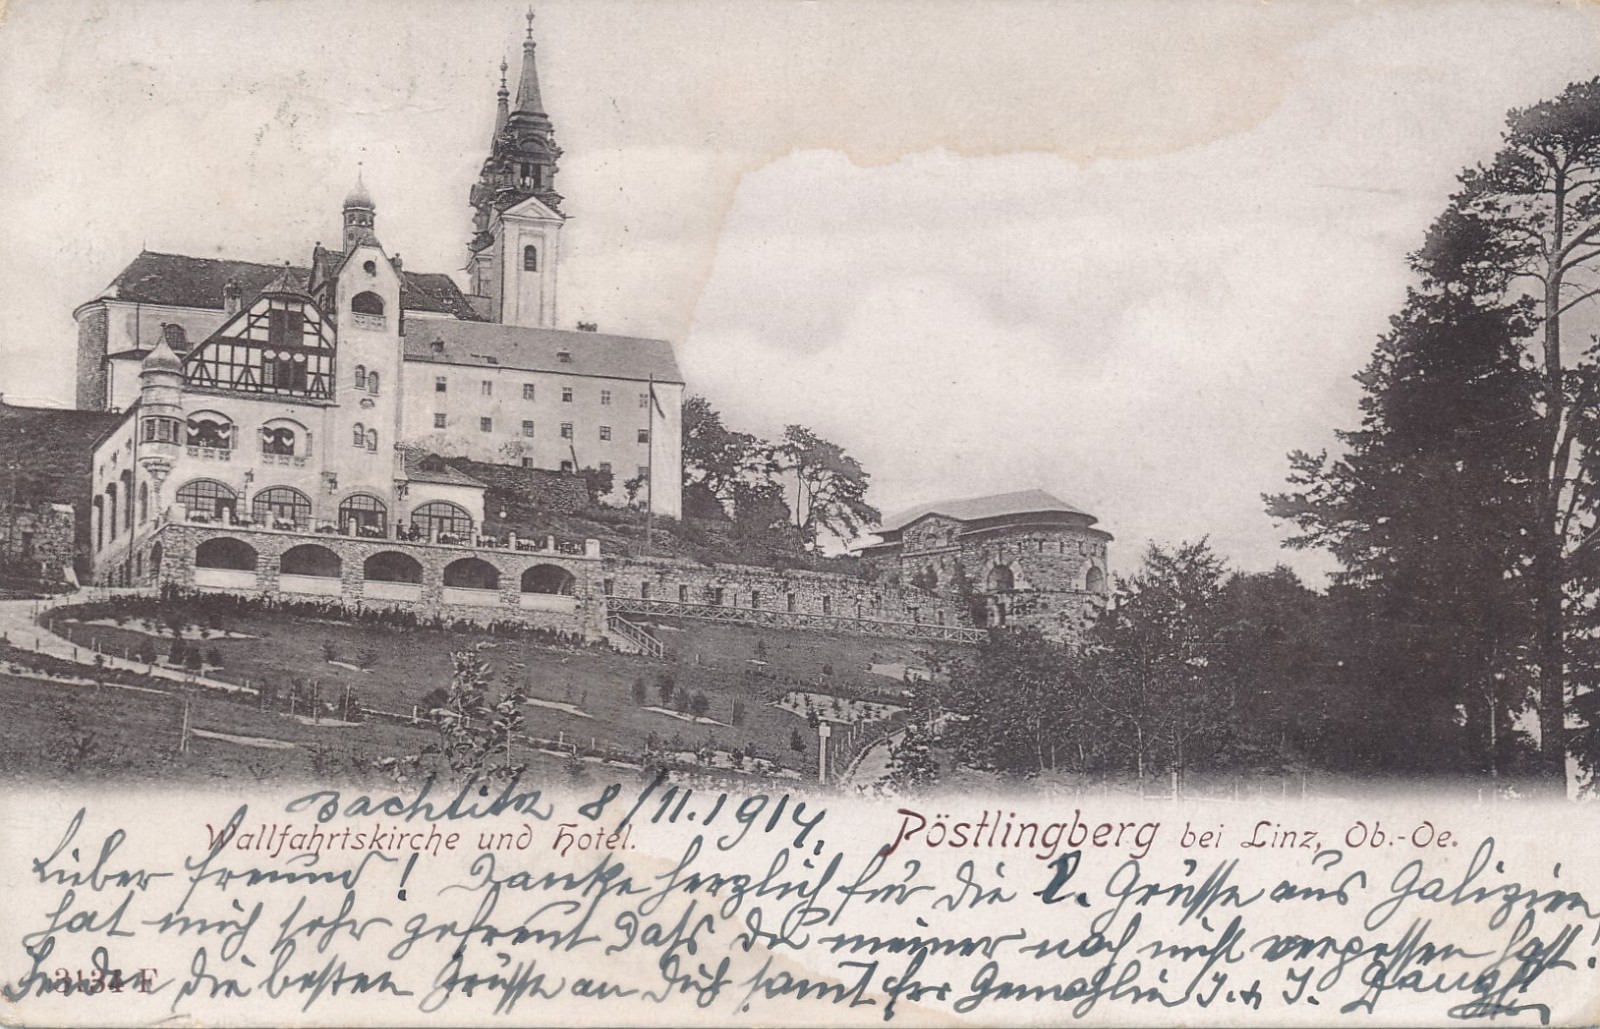 8/11.1914.
Wallfahrtskirche und Hotel.
Pöstlingberg bei Linz, Ob.-Oe.
Lieber Freund! Danke herzlich für die l. Grüsse aus Galizien,
hat mich sehr gefreut dass du meiner noch nicht vergessen hast!
Sende die besten Grüsse an Dich samt Frr Gemahlin J. u J.
3134 F